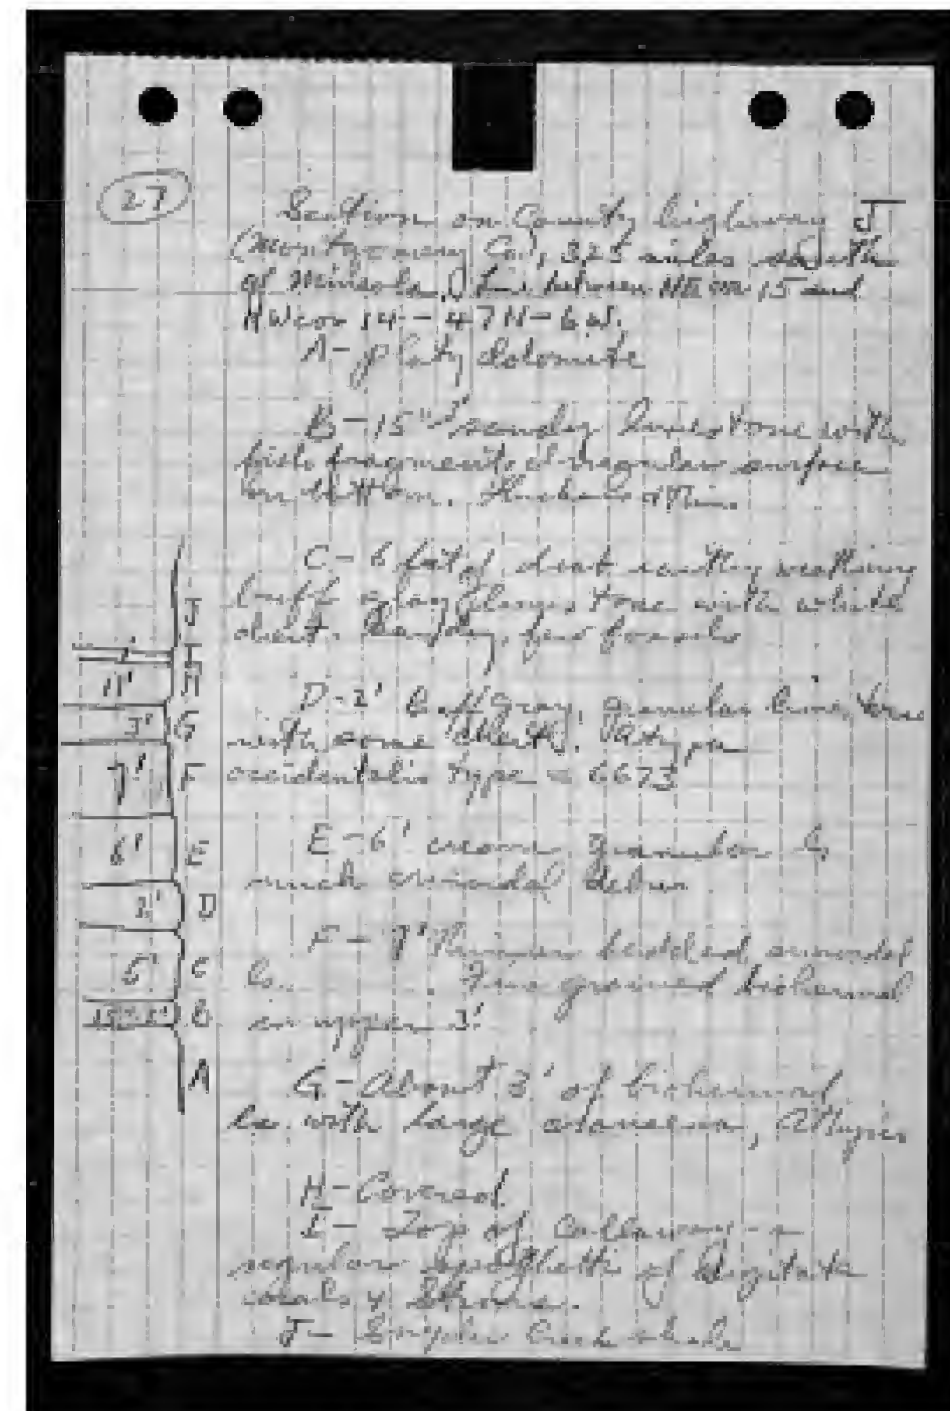 27
Section on County highway J
(Montgomery Co), 3.25 miles south
of Mineola. Line between NE cor 15 and
NW cor 14-47N-6W.
A- platy dolomite
B-15"-2' sandy limestone with
fish fragments irregular surface
on bottom.
C- 6 feet of
buff limestone with white
chert. Sandy, few fossils
D-2' buff gray, granular limestone
with some chert. Atrypa
occidentalis type = 6673
E-6' cream granular ls
much crinoidal debris
F- 7' Thinner bedded crinoidal
ls. Fine grained biohermal
in upper 3'.
G- About 3' of biohermal
ls. with large Atrypas
H- Covered
I- Top of Callaway - a
regular spaghetti of digitate
corals & stroms.
J- Snyder Creek shale
J
I
11' H
3' G
7' F
6' E
2' D
6' C
15"-2' B
A